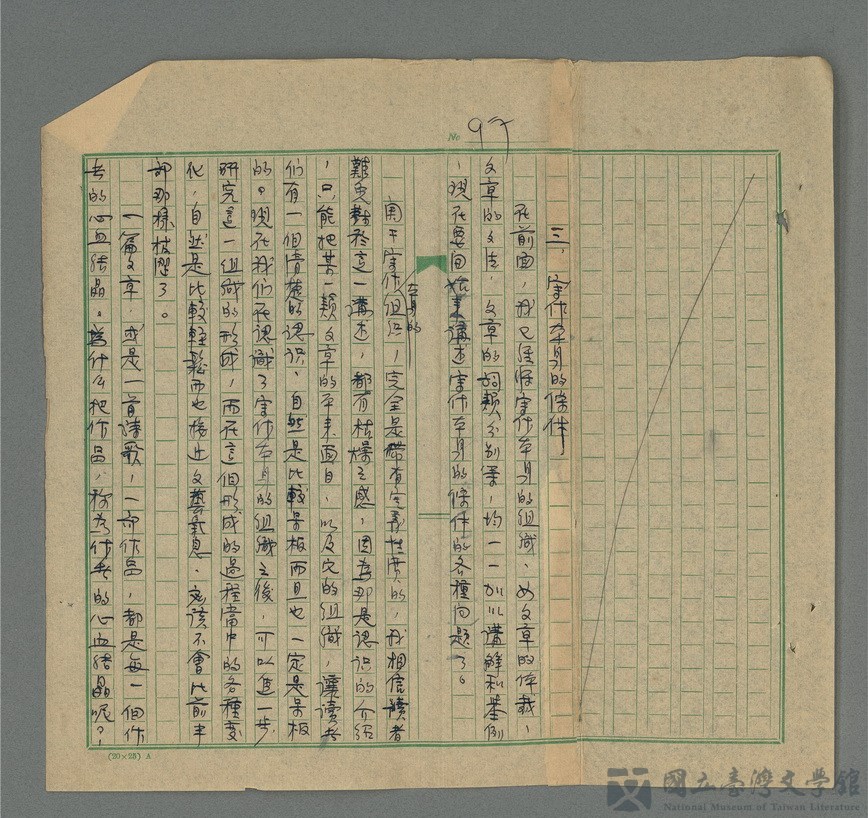 No 97
三、寫作本身的條件
在前面，我已經將寫作本身的組織、如文章的体裁、
文章的文法、文章的詞類分別等，均一一加以講解和舉例
，現在要回始來講述寫作本身的條件的各種问題了。
關于寫作本身的组识，完全是帶有定義性质的，我相信讀者
難免對於這一講述，都有枯燥之感，因為那是認识的介绍
，只能把某一類文章的本来面目，以及它的组織，讓讀者
们有一個清楚的認识。自然是比較呆板而且也一定是呆板
的。現在我们在認識了寫作本身的組織之後，可以進一步
研究這一组織的形成，而在這個形成的過程當中的各種变
化，自然是比較輕鬆而也接近文藝氣息、应該不會比前半
部那樣枯燥了。
一篇文章，或是一首詩歌，一部作品，都是每一個作
者的心血结晶。為什么把作品，称為作者的心血结晶呢？，
(20×25) A
國立臺灣文學館
National Museum of Taiwan Literature